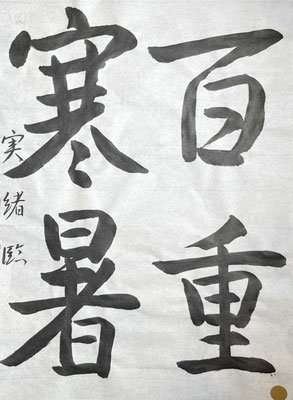 百重
寒暑
実緒臨